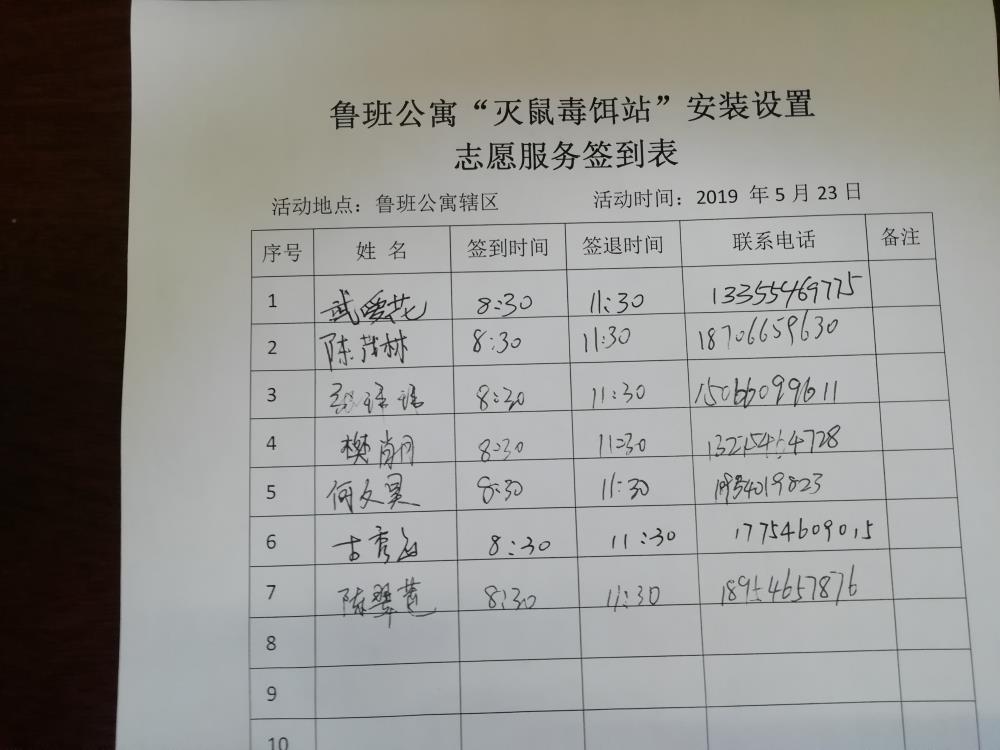 鲁班公寓“灭鼠毒饵站”安装设置
志愿服务签到表
活动地点：鲁班公寓辖区 活动时间：2019 年 5 月 23 日
序号 姓 名 签到时间 签退时间 联系电话 备注
1 武爱花 8:30 11:30 13355469775
2 陈茂林 8:30 11:30 18706659630
3 8:30 11:30 15066099611
4 樊 8:30 11:30
5 何文昊 8:30 11:30
6 古秀 8:30 11:30 17754609015
7 陈翠 8:30 11:30 18954657876
8
9
10